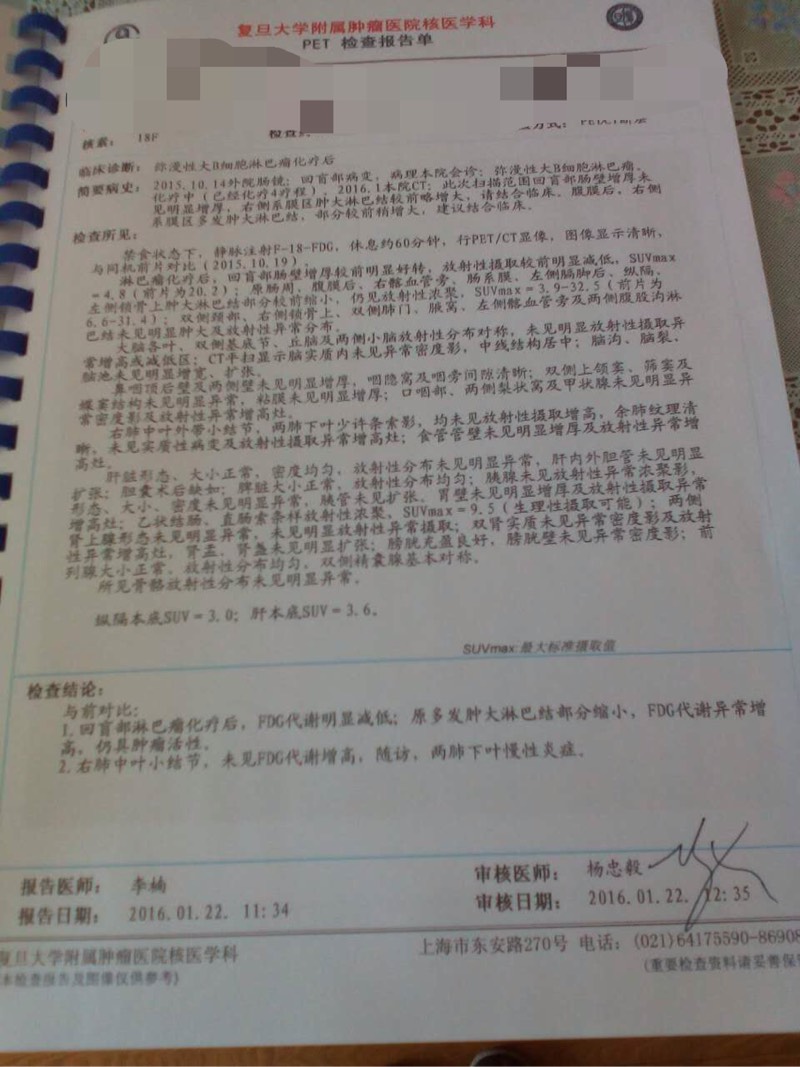 复旦大学附属肿瘤医院核医学科
PET 检查报告单
核素： 18F
临床诊断： 弥漫性大B细胞淋巴瘤化疗后
简要病史： 2015.10.14外院肠镜：回盲部病变，病理本院会诊：弥漫性大B细胞淋巴瘤。
化疗中（已经化疗4疗程），2016.1本院CT：此次扫描范围回盲部肠壁增厚未
见明显增厚，右侧系膜区肿大淋巴结较前略增大，请结合临床。腹膜后、右侧
系膜区多发肿大淋巴结，部分较前稍增大，建议结合临床。
检查所见：
禁食状态下，静脉注射F-18-FDG，休息约60分钟，行PET/CT显像，图像显示清晰，
与同机前片对比（2015.10.19）：
淋巴瘤化疗后，回盲部肠壁增厚较前明显好转，放射性摄取较前明显减低，SUVmax
=4.8（前片为20.2）；原肠周、腹膜后、右髂血管旁、肠系膜、左侧膈脚后、纵隔、
左侧锁骨上肿大淋巴结部分较前缩小，仍见放射性浓聚，SUVmax=3.9-32.5（前片为
6.6-31.4）；双侧颈部、右侧锁骨上、双侧肺门、腋窝、左侧髂血管旁及两侧腹股沟淋
巴结未见明显肿大及放射性异常分布。
大脑各叶、双侧基底节、丘脑及两侧小脑放射性分布对称，未见明显放射性摄取异
常增高或减低区；CT平扫显示脑实质内未见异常密度影，中线结构居中；脑沟、脑裂、
脑池未见明显增宽、扩张。
鼻咽顶后壁及两侧壁未见明显增厚，咽隐窝及咽旁间隙清晰；双侧上颌窦、筛窦及
蝶窦结构未见明显异常，粘膜未见明显增厚；口咽部、两侧梨状窝及甲状腺未见明显异
常密度影及放射性异常增高灶。
右肺中叶外带小结节，两肺下叶少许条索影，均未见放射性摄取增高，余肺纹理清
晰，未见实质性病变及放射性摄取异常增高灶；食管管壁未见明显增厚及放射性异常增
高灶。
肝脏形态、大小正常，密度均匀，放射性分布未见明显异常，肝内外胆管未见明显
扩张；胆囊术后缺如；脾脏大小正常，放射性分布均匀；胰腺未见放射性异常浓聚影，
形态、大小、密度未见明显异常，胰管未见扩张、胃壁未见明显增厚及放射性摄取异常
增高灶；乙状结肠、直肠索条样放射性浓聚，SUVmax=9.5（生理性摄取可能）；两侧
肾上腺形态未见明显异常，未见明显放射性异常摄取；双肾实质未见异常密度影及放射
性异常增高灶，肾盂、肾盏未见明显扩张；膀胱充盈良好，膀胱壁未见异常密度影；前
列腺大小正常、放射性分布均匀，双侧精囊腺基本对称。
所见骨骼放射性分布未见明显异常。
纵隔本底SUV=3.0；肝本底SUV=3.6。
SUVmax:最大标准摄取值
检查结论：
与前对比：
1.回盲部淋巴瘤化疗后，FDG代谢明显减低；原多发肿大淋巴结部分缩小，FDG代谢异常增
高，仍具肿瘤活性。
2.右肺中叶小结节，未见FDG代谢增高，随访，两肺下叶慢性炎症。
报告医师： 李楠
审核医师： 杨忠毅
报告日期： 2016.01.22. 11:34
审核日期： 2016.01.22. 12:35
复旦大学附属肿瘤医院核医学科
上海市东安路270号 电话：(021)64175590-86908
本检查报告及图像仅供参考)
(重要检查资料请妥善保